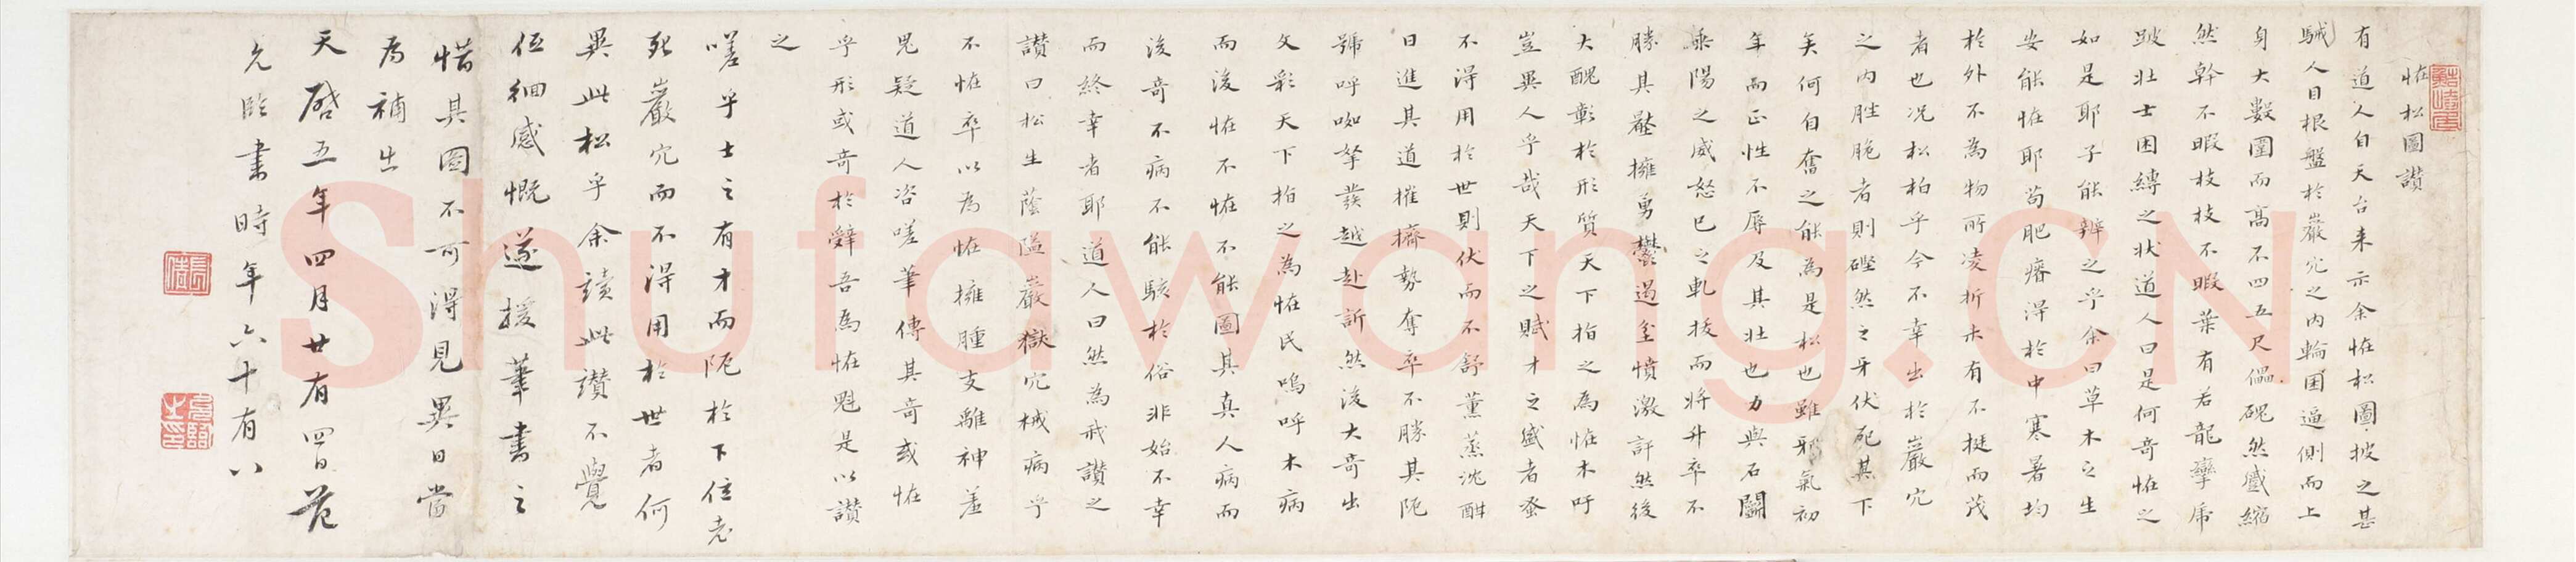 怪松圖讚
有道人自天台来示余怪松圖披之甚
駴人目根盤於巖穴之内輪囷逼側而上
身大數圍而高不四五尺儡磈然蹙縮
然幹不暇枝枝不暇葉有若龍攣虎
跛壯士囚縛之狀道人曰是何奇怪之
如是耶子能辨之乎余曰草木之生
安能怪耶苟肥瘠得於中寒暑均
於外不為物所凌折未有不挺而茂
者也况松柏乎今不幸出於巖穴
之内脞脆者則磹然之牙伏死其下
矣何自奮之能為是松也雖邪氣初
年而正性不辱及其壯也力與石鬭
乘陽之威怒已之軋拔而將升卒不
勝其壓擁勇鬱遏坌憤激訐然後
大醜彰於形質天下指之為怪木吁
豈異人乎哉天下之賦才之盛者蚤
不得用於世則伏而不舒薰蒸沈酣
日進其道摧擠勢奪卒不勝其阨
號呼呶拏發越赴訴然後大奇出
文彩天下指之為怪民嗚呼木病
而後怪不怪不能圖其真人病而
後奇不病不能駭於俗非始不幸
而終幸者耶道人曰然為我讚之
讚曰松生蔭隘巖獄穴械病乎
不怪卒以為怪擁腫支離神羞
鬼疑道人咨嗟筆傳其奇或怪
乎形或奇於辭吾為怪魁是以讚
之
嗟乎士之有才而阨於下位老
死巖穴而不得用於世者何
異此松乎余讀此讚不覺
伍徊感慨遂援筆書之
惜其圖不可得見異日當
為補出
天啓五年四月廿有四日范
允臨書時年六十有八